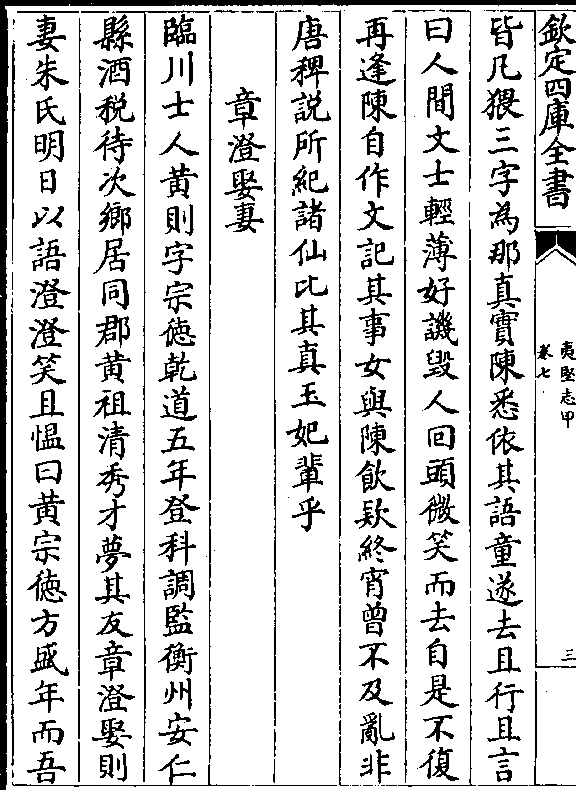 欽定四庫全書
夷堅志甲
卷七
三
皆凡猥三字為那真實陳悉依其語童遂去且行且言
曰人間文士輕薄好譏毀人回頭微笑而去自是不復
再逢陳自作文記其事女與陳飲款終宵曾不及亂非
唐稗説所紀諸仙比其真玉妃輩乎
章澄娶妻
臨川士人黄則字宗徳乾道五年登科調監衡州安仁
縣酒税待次鄉居同郡黄祖清秀才夢其友章澄娶則
妻朱氏明日以語澄澄笑且愠曰黄宗徳方盛年而吾